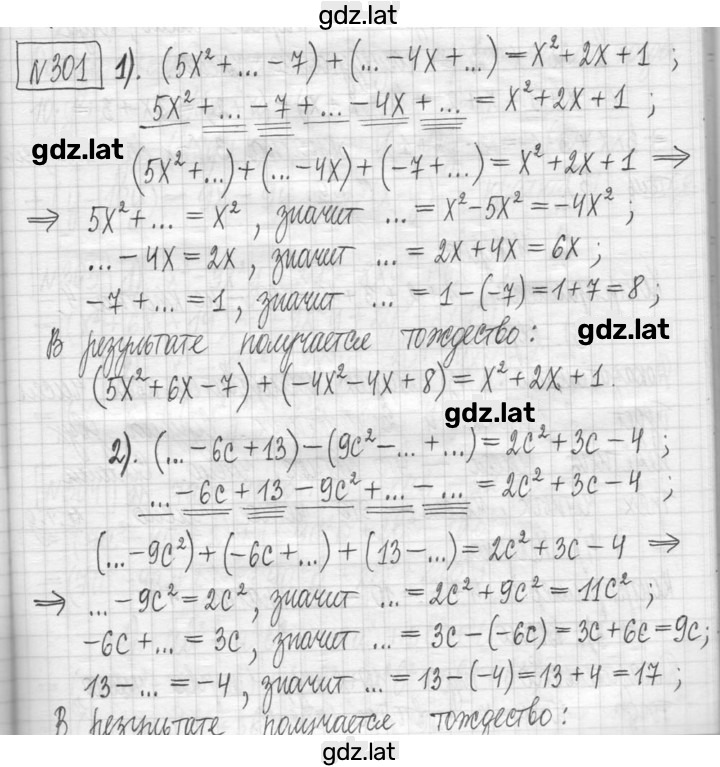 gdz.lat
№301 1). (5x²+...-7)+(...-4x+...)=x²+2x+1 ;
5x²+...-7+...-4x+...=x²+2x+1 ;
gdz.lat
(5x²+...)+(...-4x)+(-7+...)=x²+2x+1 ⇒
⇒ 5x²+...=x², значит ...=x²-5x²=-4x² ;
...-4x=2x, значит ...=2x+4x=6x ;
-7+...=1, значит ...=1-(-7)=1+7=8 ;
В результате получается тождество: gdz.lat
(5x²+6x-7)+(-4x²-4x+8)=x²+2x+1.
gdz.lat
2). (...-6c+13)-(9c²-...+...)=2c²+3c-4 ;
...-6c+13-9c²+...-...=2c²+3c-4 ;
(...-9c²)+(-6c+...)+(13-...)=2c²+3c-4 ⇒
⇒ ...-9c²=2c², значит ...=2c²+9c²=11c² ;
-6c+...=3c, значит ...=3c-(-6c)=3c+6c=9c;
13-...=-4, значит ...=13-(-4)=13+4=17 ;
В результате получается тождество:
gdz.lat